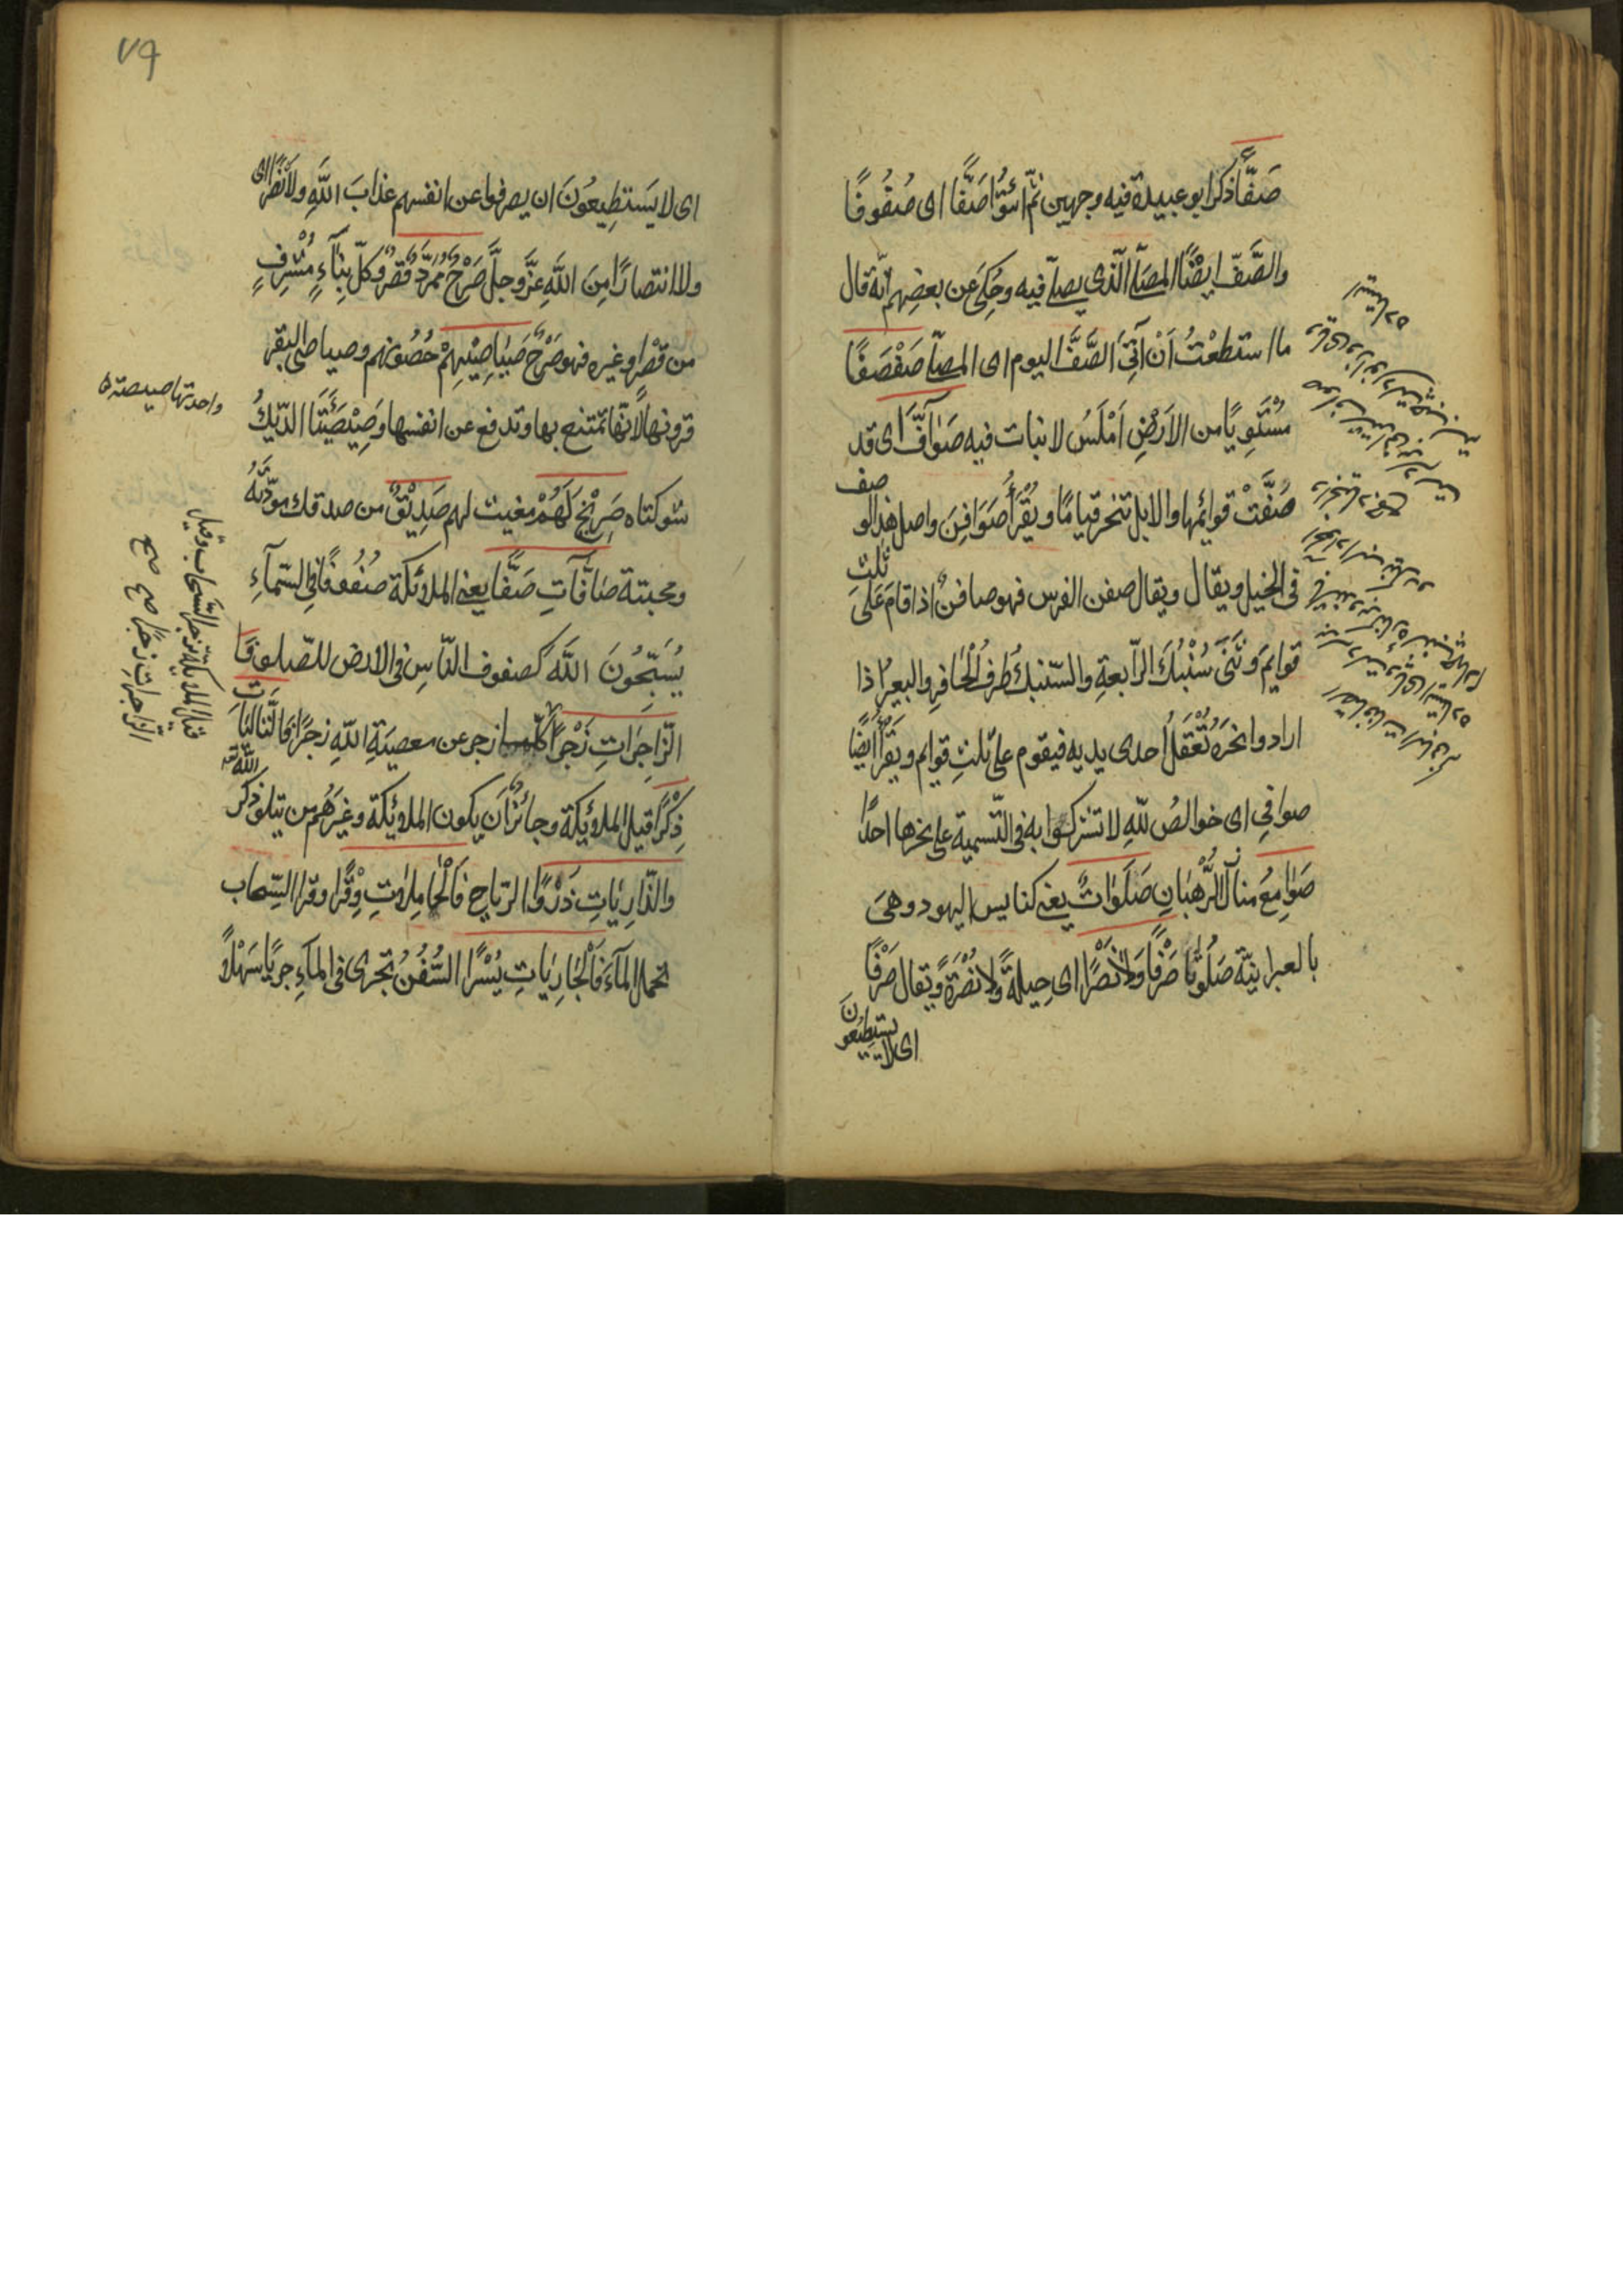 صَفًّا ذكر ابو عبيدة فيه وجهين ثُمَّ ائْتُوا صَفًّا اى صُفُوفًا
والصَّفّ ايضًا المصلّى الّذى يصلّى فيه وحُكِىَ عن بعضِهم انّه قال
ما استطعْتُ اَنْ آتِىَ الصَّفَّ اليوم اى المصلّى صَفْصَفًا
مُسْتَوِيًا من الاَرْضِ اَمْلَسُ لا نبات فيه صَوَآفَّ اى قد
صُفَّتْ قوائمُها والابل تنحر قيامًا ويُقْرَأُ صَوَافِنَ واصل هذا الو
صف
فى الخيل ويقال ويقال صفن الفرس فهو صافنٌ اذا قامَ عَلَى
ثلث
قوايمَ وثَنَى سُنْبُكَ الرّابعةِ والسّنبك طَرفُ الْحافِرِ والبعيرُ اذا
ارادوا نحرَهُ تُعْقَلُ احدى يديه فيقوم على ثلثِ قوايم ويُقْرَأُ ايضًا
صوافِى اى خوالصُ للهِ لا تشركوا به فى التّسمية على نحرها احدًا
صَوَامِعُ منازلُ الرُّهْبَانِ صَلَوَاتٌ يعنى كنايس اليهود وهىَ
بالعبرانيّة صَلُوتَا صَرْفًا وَلَا نَصْرًا اى حِيلةً ولا نُصْرَةً ويقال صَرْفًا
اى لا يستطيعونَ
٧٩
اى لا يَستطِيعُونَ ان يصرفوا عن انفسهم عذابَ اللهِ ولا نَصْرًا اى
ولا انتصارًا مِنَ اللهِ عزّ وجلّ صَرْحٌ مُمَرَّدٌ قصرٌ وكلّ بِنَآءٍ مُشْرِفٍ
من قصْرٍ وغيره فهو صَرْحٌ صَيَاصِيْهِمْ حُصُونهم وصياصى البقر
قرونها لانّها تمتنع بها وتدفع عن انفسها وَصِيْصَيَتَا الدّيكُ
واحدتها صيصة
شوكتاه صَرِيْخَ لَهُمْ مغيث لهم صَدِيْقٌ من صدقك مودّتُهُ
ومحبته صَافَّاتِ صَفًّا يعنى الملائكة صُفُوفًا فى السّمآءِ
يُسَبِّحُونَ اللهَ كصفوف النّاسِ فى الارض للصّلوة فَا
الزّاجِرَاتِ زَجْرًا زجر عن معصيَةِ اللهِ زجرًا فَالتّالِيَاتِ
ذِكْرًا قيل الملائكة وجائزٌ اَن يكون الملائكة وغيرَهُم من يتلو ذكر
الله
والذّارِيَاتِ ذَرْوًا الرّياح فَالْحَامِلاتِ وِقْرًا وقرا السّحاب
تحمل المآءَ فَالْجَارِيَاتِ يُسْرًا السُّفُنُ تجرى فى المآءِ جريًا سَهْلًا
قيل الملائكة تزجر السّحاب وقيل
الزّاجراتِ زجرًا صح صح